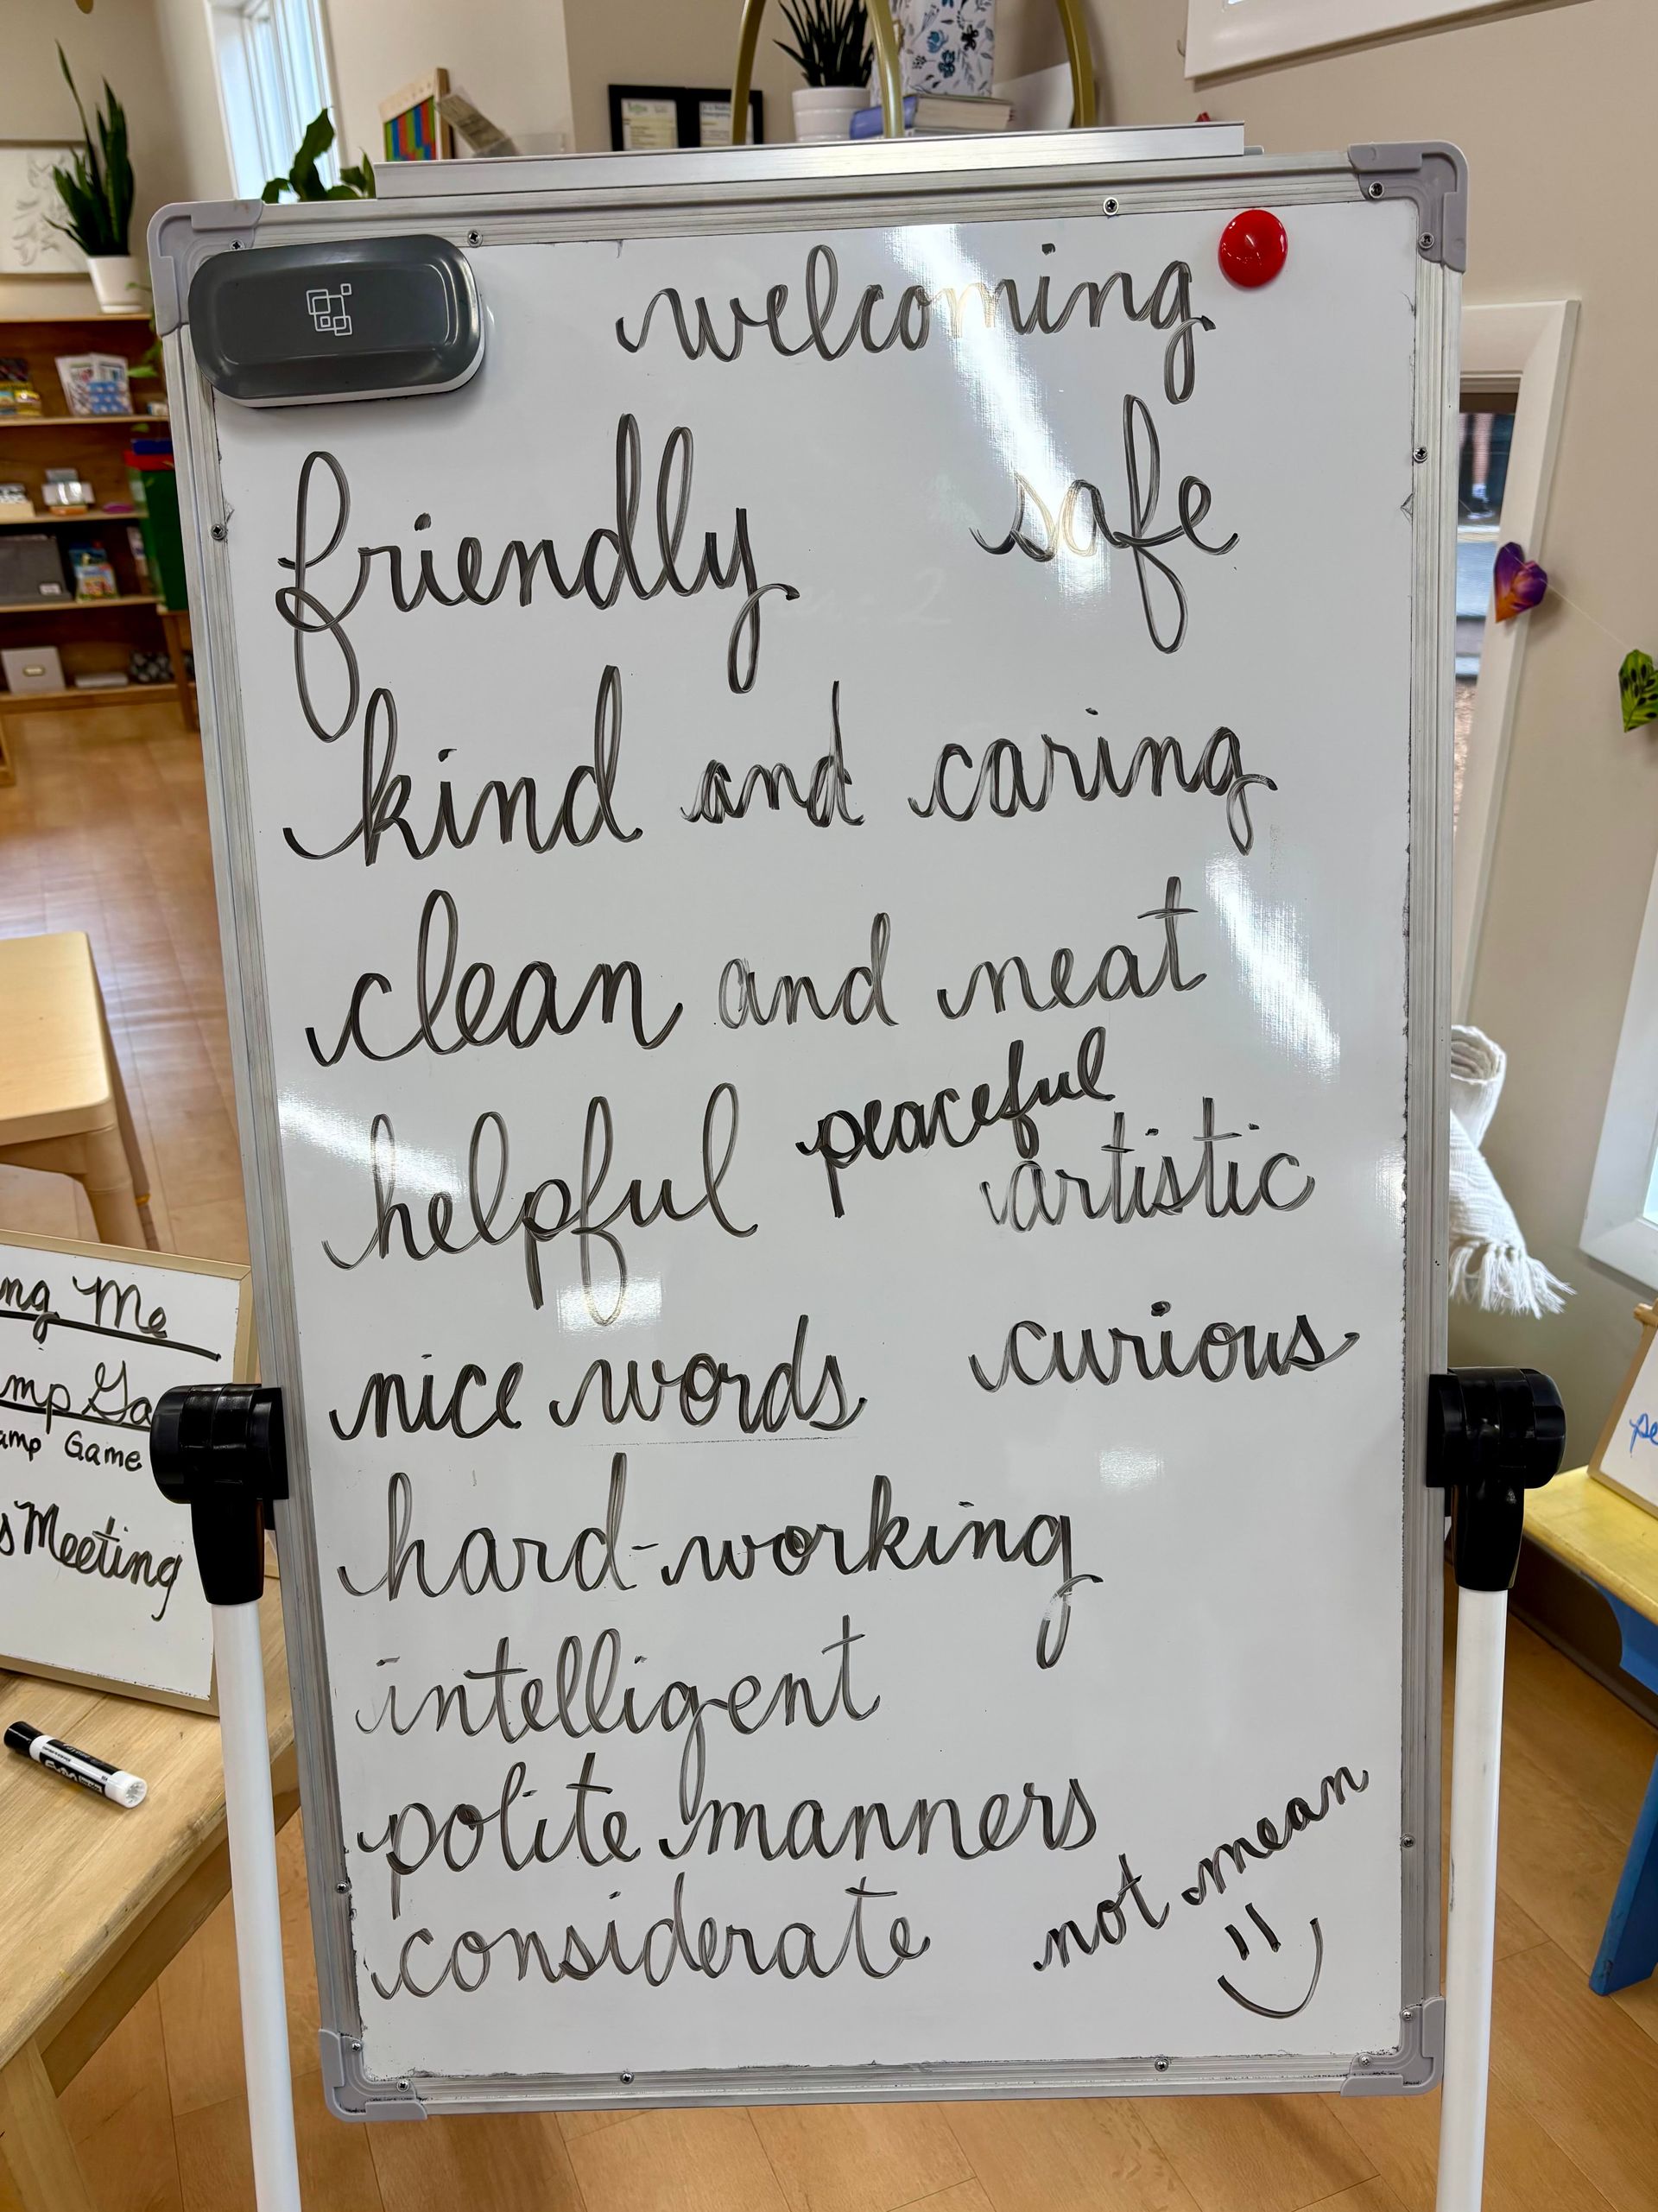 welcoming
friendly safe
kind and caring
clean and neat
helpful peaceful
artistic
nice words curious
hard-working
intelligent
polite manners
considerate not mean
ng Me
mp Ga
amp Game
s Meeting